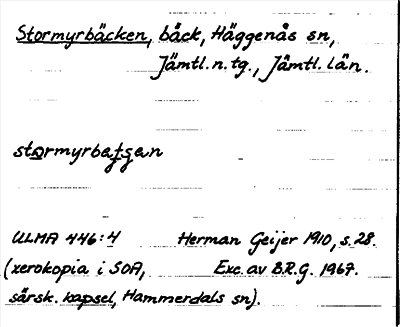 Stormyrbäcken, bäck, Häggenås sn,
Jämtl. n. tg., Jämtl. län.
stormyrbaɟ̯ɟan
ULMA 446:4 Herman Geijer 1910, s. 28.
(xerokopia i SOA, Exc. av B.R.G. 1967.
särsk. kapsel, Hammerdals sn).